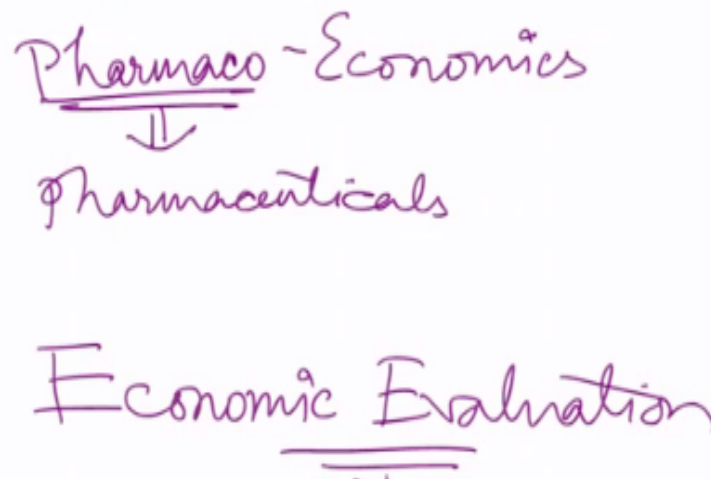 Pharmaco-Economics
Pharmaceuticals
Economic Evaluation